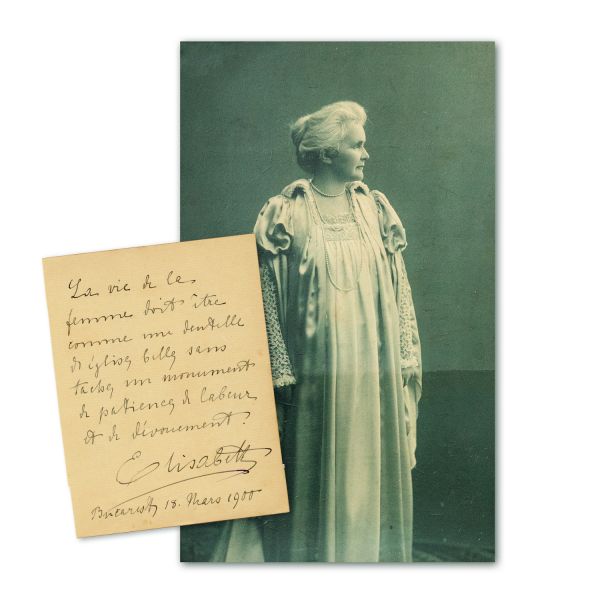 La vie de la
femme doit être
comme une dentelle
d'église, belle, sans
tache, un monument
de patience, de labeur
et de dévouement.
Elisabeth
Bucarest, 18. Mars 1900